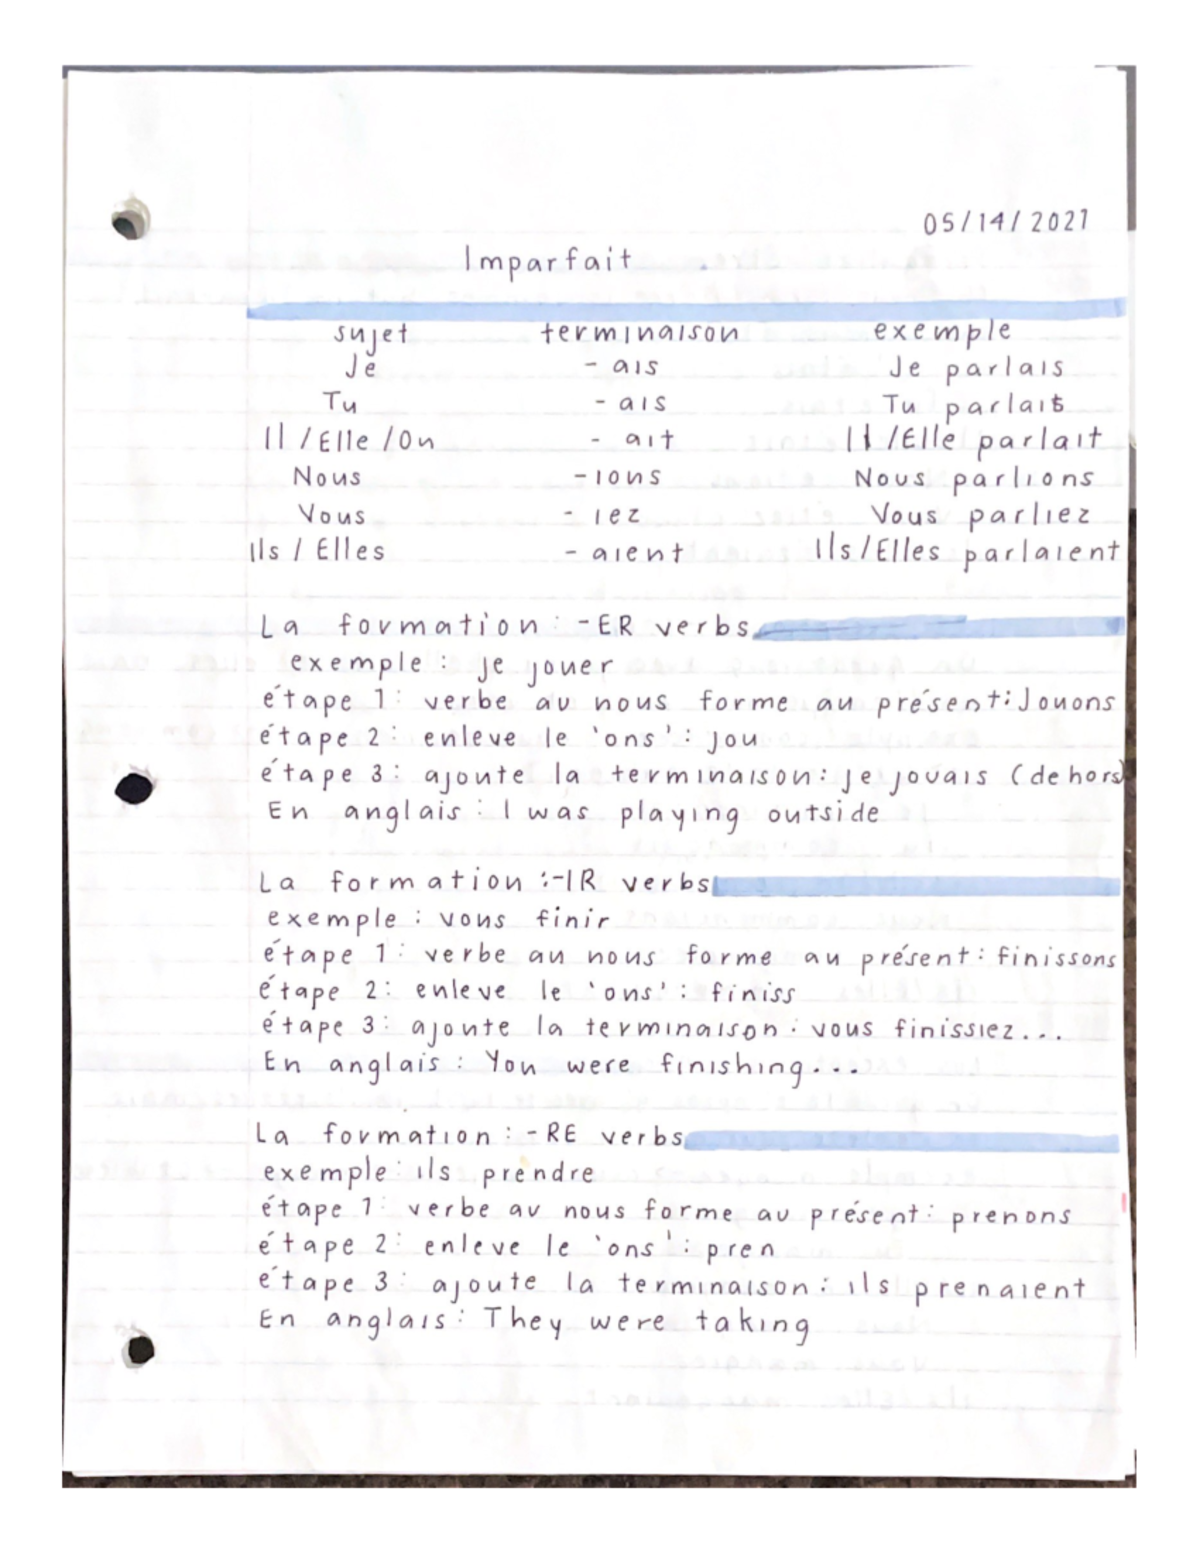 05/14/2021
Imparfait
sujet terminaison exemple
Je - ais Je parlais
Tu - ais Tu parlais
Il/Elle/On - ait Il/Elle parlait
Nous - ions Nous parlions
Vous - iez Vous parliez
Ils/Elles - aient Ils/Elles parlaient
La formation: -ER verbs
exemple: je jouer
étape 1: verbe au nous forme au présent: Jouons
étape 2: enleve le 'ons': jou
étape 3: ajoute la terminaison: je jouais (dehors)
En anglais: I was playing outside
La formation: -IR verbs
exemple: vous finir
étape 1: verbe au nous forme au présent: finissons
étape 2: enleve le 'ons': finiss
étape 3: ajoute la terminaison: vous finissiez...
En anglais: You were finishing...
La formation: -RE verbs
exemple: ils prendre
étape 1: verbe au nous forme au présent: prenons
étape 2: enleve le 'ons': pren
étape 3: ajoute la terminaison: ils prenaient
En anglais: They were taking